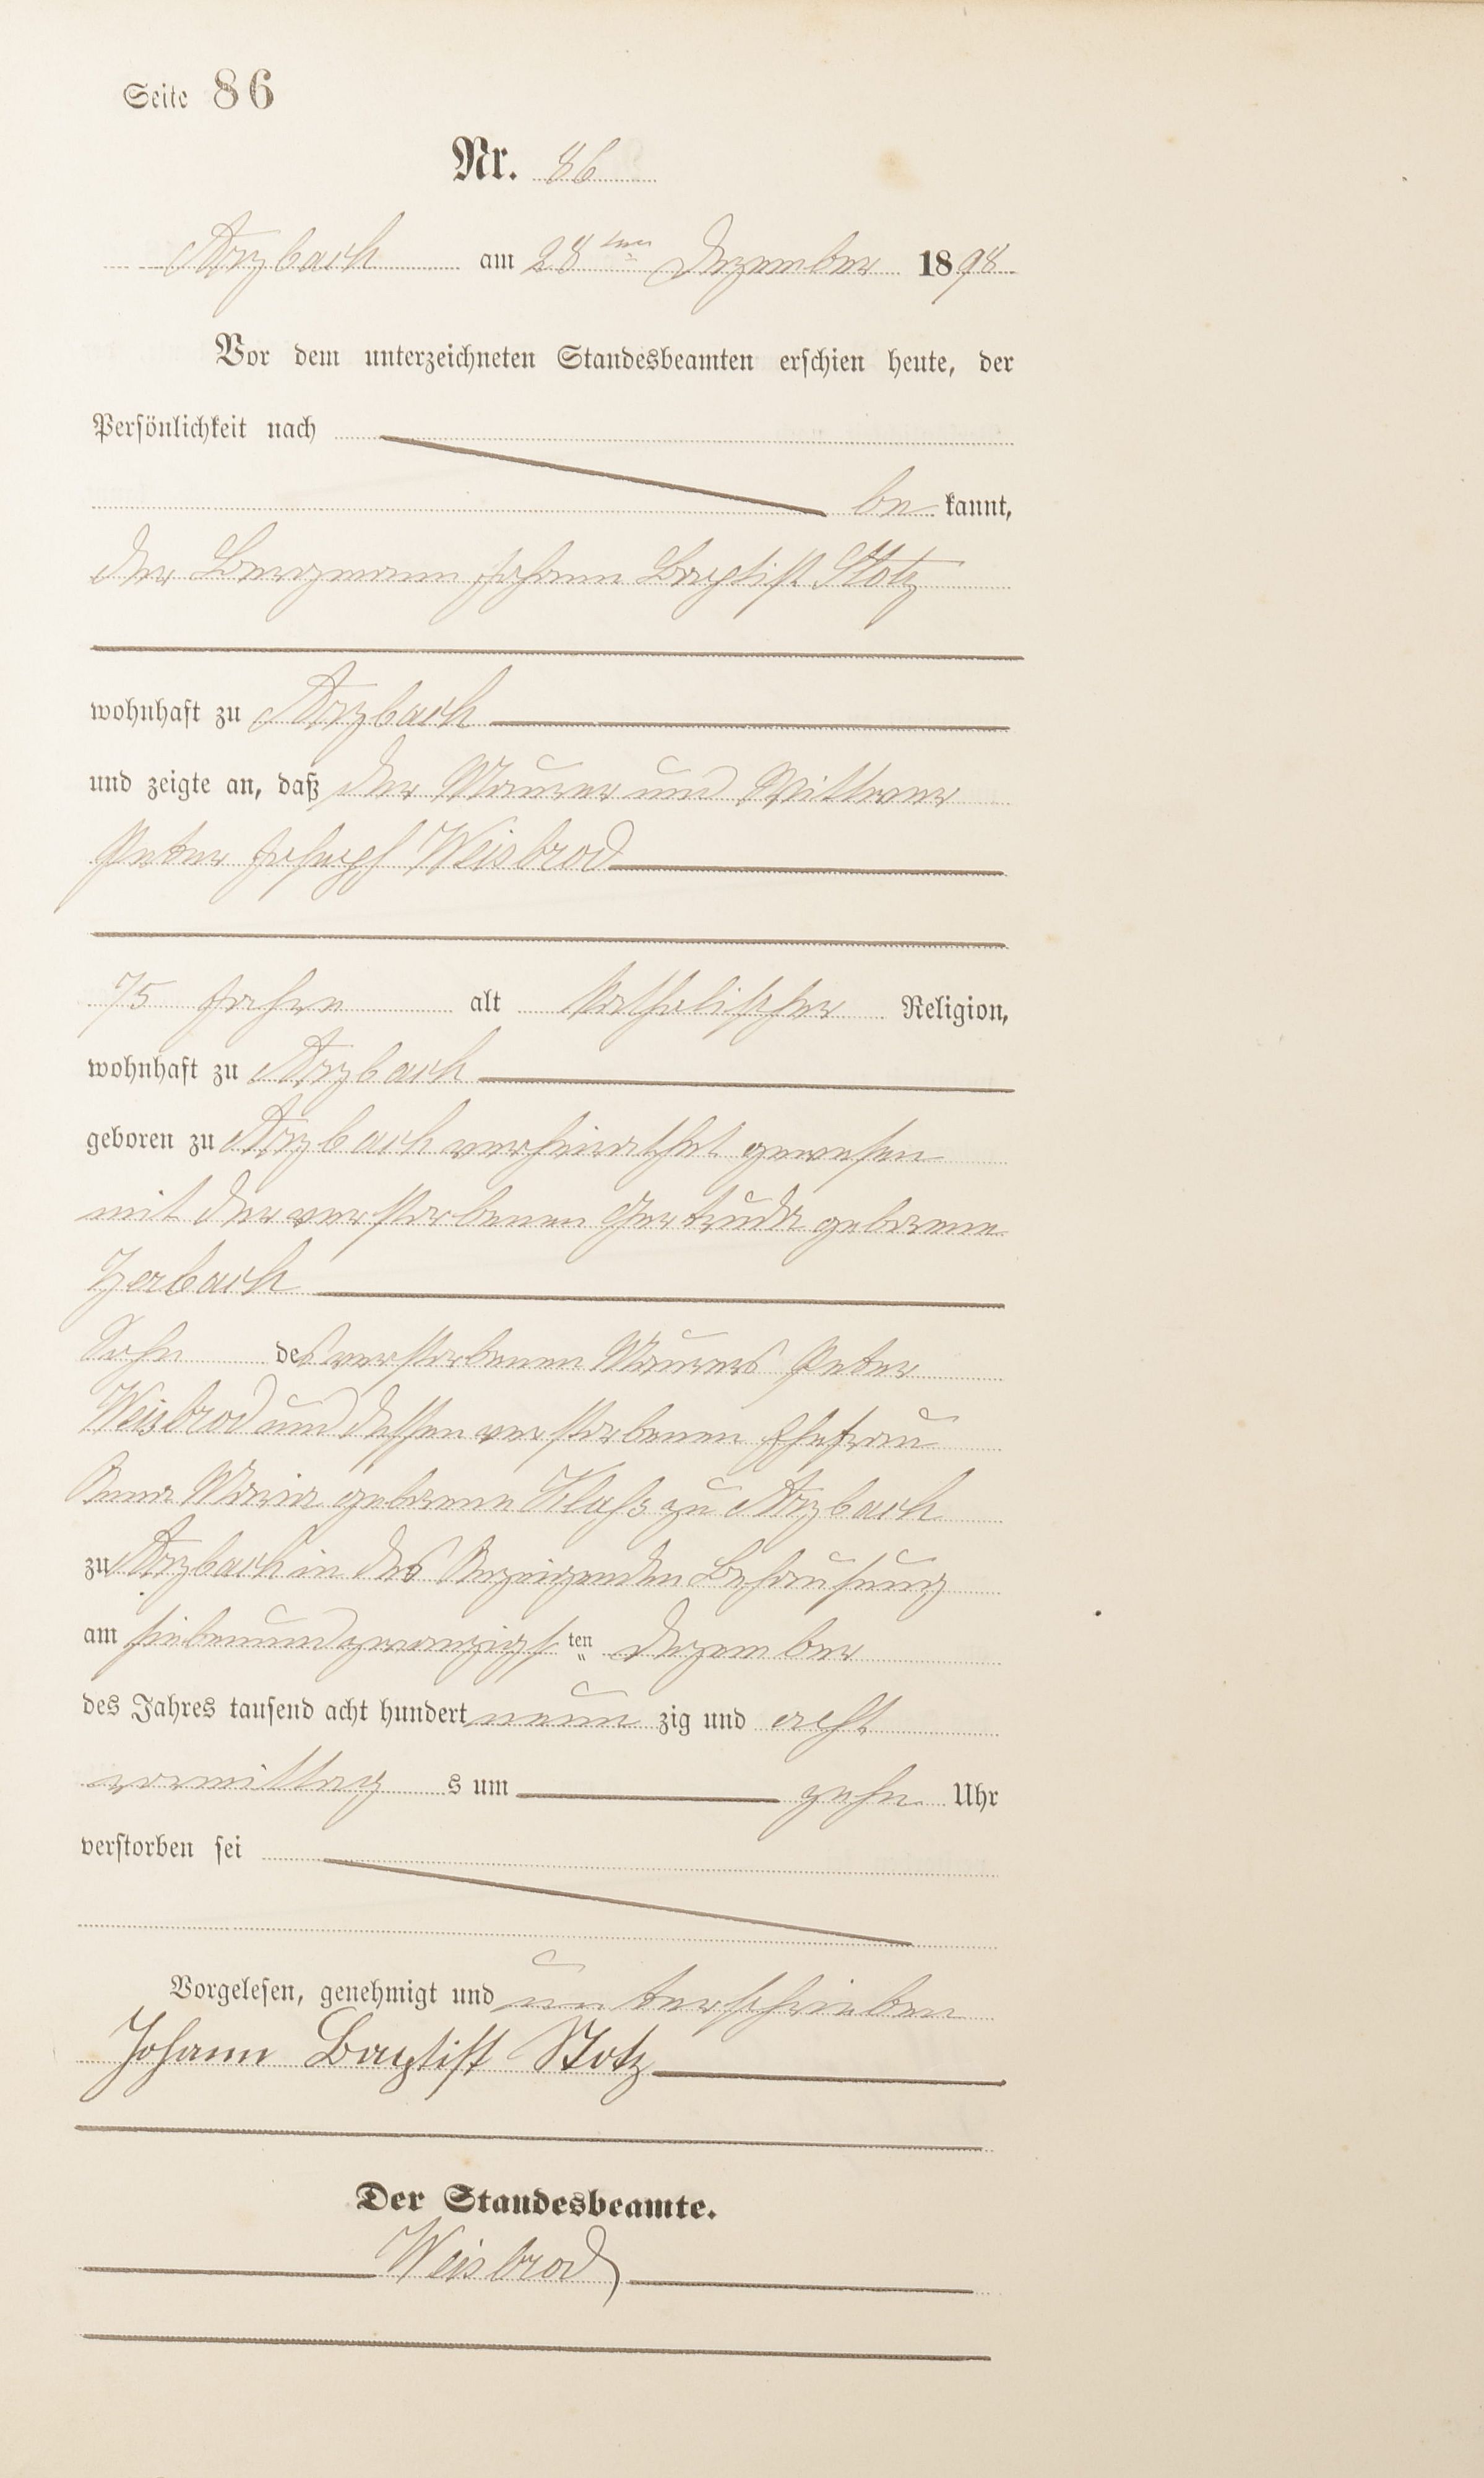 Seite 86
Nr. 86
Arzbach am 28ten Dezember 1898
Vor dem unterzeichneten Standesbeamten erschien heute, der
Persönlichkeit nach
be kannt,
der Bergmann Johann Baptist Stotz
wohnhaft zu Arzbach
und zeigte an, daß der Maurer und Wittwer
Peter Joseph Weisbrod
75 Jahre alt katholischer Religion,
wohnhaft zu Arzbach
geboren zu Arzbach verheirathet gewesen
mit der verstorbenen Gertruda geborene
Zerbach
Sohn des verstorbenen Maurers Peter
Weisbrod und dessen verstorbenen Ehefrau
Anna Maria geborene Klass zu Arzbach
zu Arzbach in des Anzeigenden Behausung
am siebenundzwanzigsten Dezember
des Jahres tausend acht hundert neun zig und acht
vormittag s um zehn Uhr
verstorben sei
Vorgelesen, genehmigt und unterschrieben
Johann Baptist Stotz
Der Standesbeamte.
Weisbrod